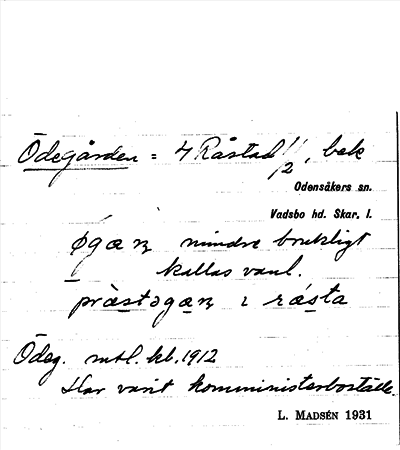 Ödegården = 4 Råstad 1/2, bek
Odensåkers sn.
Vadsbo hd. Skar. l.
mindre brukligt
kallas vanl.
pràstəgæɳ ı rásta
Ödeg. mtl. kb. 1912
Har varit komministerboställe.
L. MADSÉN 1931